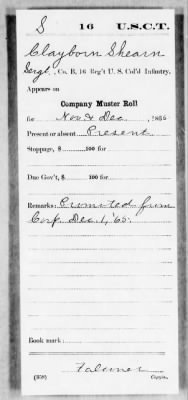 S 16 U.S.C.T.
Clayborn Shearn
Sergt., Co. B, 16 Reg't U. S. Col'd Infantry.
Appears on
Company Muster Roll
for Nov & Dec, 1865
Present or absent Present
Stoppage, $ 100 for
Due Gov't, $ 100 for
Remarks: Promoted from
Corp. Dec. 1, '65.
Book mark:
(358) Copyist.